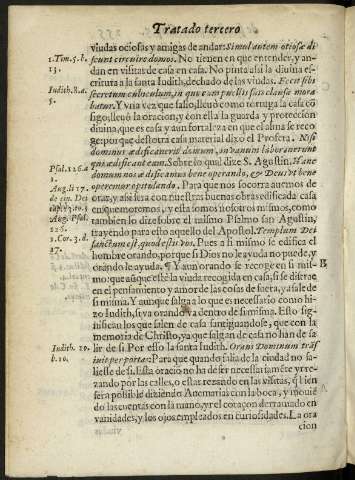 Tratado tercero
viudas ociosas y amigas de andar: Simul autem otiosæ di
scunt circuire domos. No tienen en que entender, y an-
dan en visitas de casa en casa. No pinta assi la diuina es-
critura a la santa Iudith, dechado de las viudas. Fecit sibi
secretum cubiculum, in quo cum puellis suis clausa mora
batur. Y vna vez que salio, lleuò como tortuga la casa cō
sigo, lleuò la oracion, y con ella la guarda y proteccion
diuina, que es casa y aun fortaleza en que el alma se reco
ge: porque destotra casa material dixo el Profeta. Nisi
dominus ædificauerit domum, in vanum laborauerunt
qui ædificant eam. Sobre lo qual dize S. Agustin. Hanc
domum nos ædificamus bene operando, & Deus vt bene
operemur opitulando. Para que nos socorra auemos de
orar, y assi sera con nuestras buenas obras edificada casa
en que moremos, y esta somos nosotros mismos, como
tambien lo dize sobre el mismo Psalmo san Agustin,
trayendo para esto aquello del Apostol. Templum Dei
sanctum est, quod estis vos. Pues a si mismo se edifica el
hombre orando, porque si Dios no le ayuda no puede, y
orando le ayuda. ¶ Y aun orando se recoge en si mis-
mo: que aunq̃ esté la viuda recogida en casa, si se distrae
en el pensamiento y amor de las cosas de fuera, ya sale de
si misma. Y aunque salga a lo que es necessario como hi-
zo Iudith, si va orando va dentro de si misma. Esto sig-
nifican los que salen de casa santiguandose, que con la
memoria de Christo, ya que salgan de casa no han de sa-
lir de si. Por esso la santa Iudith. Orans Dominum trās
iuit per portas: Para que quando salia de la ciudad no sa-
liesse de si. Esta oraciō no ha de ser necessariamēte yr re-
zando por las calles, o estar rezando en las visitas, q̃ biē en
sera posible diziendo Auemarias con la boca, y mouiē
do las cuentas con la mano, yr el coraçon derramado en
vanidades, y los ojos empleados en curiosidades. La ora
cion
1. Tim. 5. b.
13.
Iudith. 8. a.
5.
Psal. 126. a
1.
Aug. li. 17.
de ciu. Dei
Aug. Psal.
126.
1. Cor. 3. d.
17.
B
Iudith. 10.
b. 10.